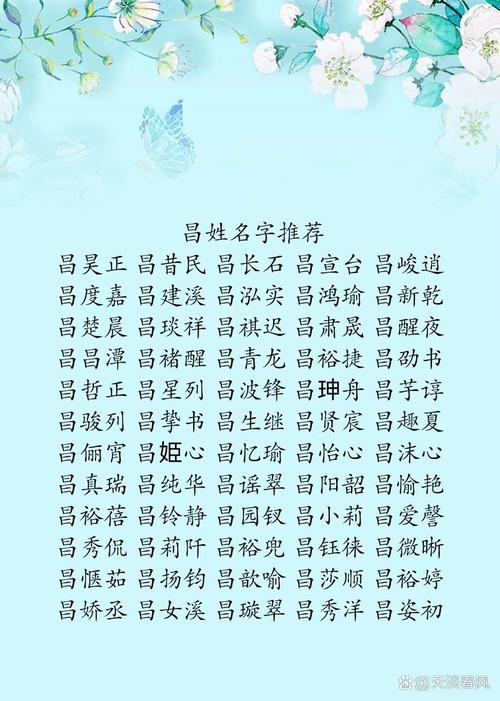 昌姓名字推荐
昌昊正 昌昔民 昌长石 昌宣台 昌峻逍
昌度嘉 昌建溪 昌泓实 昌鸿瑜 昌新乾
昌楚晨 昌琰祥 昌祺迟 昌肃晟 昌醒夜
昌昌潭 昌褚醒 昌青龙 昌裕捷 昌劭书
昌哲正 昌星列 昌波锋 昌珅舟 昌芋谆
昌骏列 昌挚书 昌生继 昌贤宸 昌趣夏
昌俪宵 昌姫心 昌忆瑜 昌怡心 昌沫心
昌真瑞 昌纯华 昌谣翠 昌阳韶 昌愉艳
昌裕蓓 昌铃静 昌园钗 昌小莉 昌爱謦
昌秀侃 昌莉阡 昌裕兜 昌钰徕 昌微晰
昌惬茹 昌扬钧 昌歆喻 昌莎顺 昌裕婷
昌娇丞 昌女溪 昌璇翠 昌秀洋 昌姿初
天淡春风